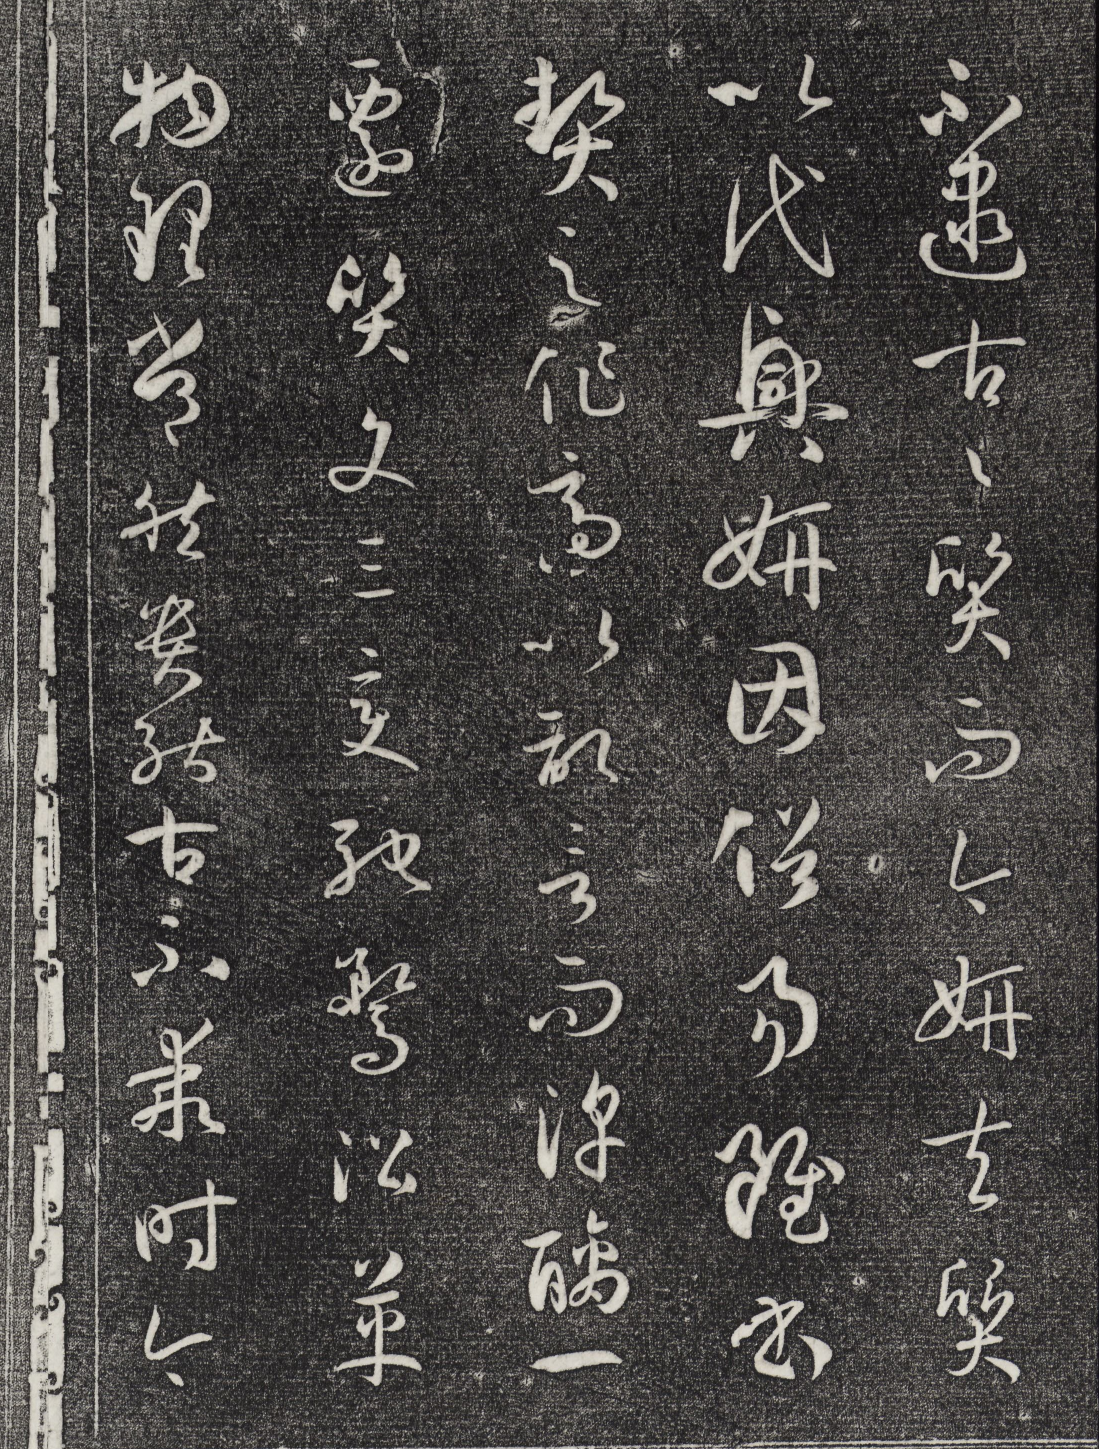 不逮古〻質而今妍夫質
以代興妍因俗易雖書
契之作適以記言而淳醨一
遷質文三變馳騖沿革
物理常然貴能古不乖時今